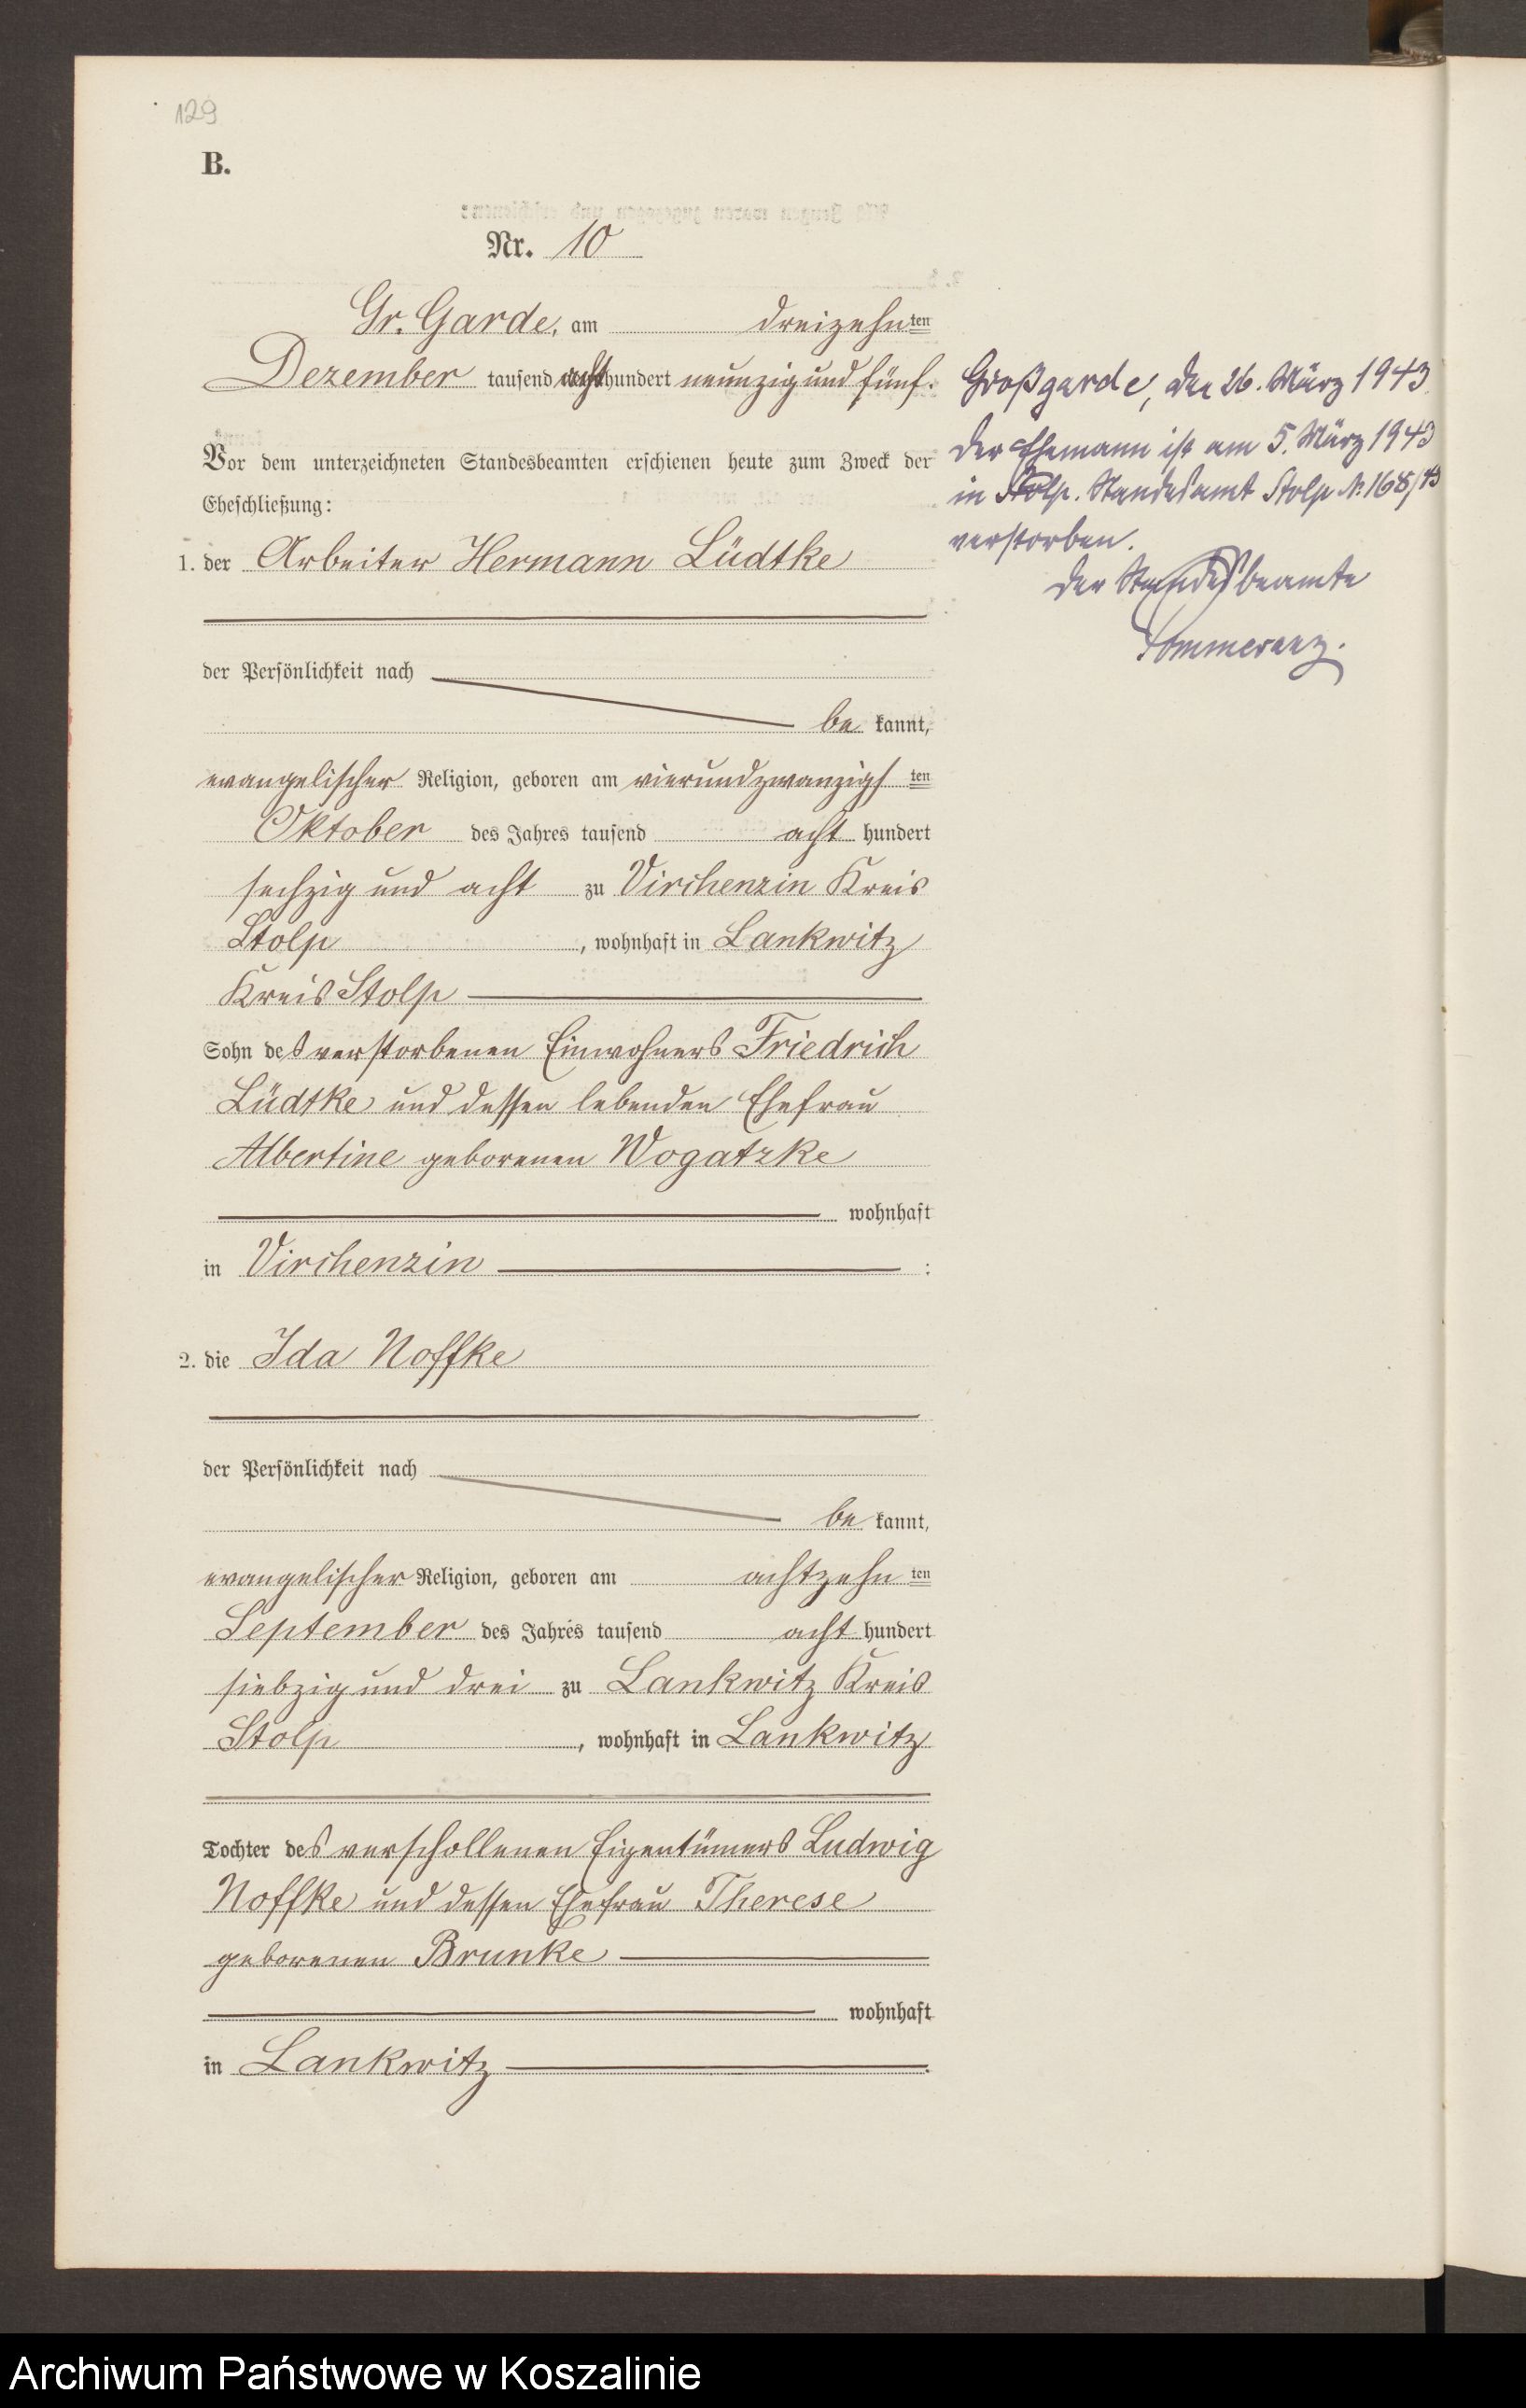 129
B.
Nr. 10
Gr. Garde, am dreizehnten
Dezember tausend achthundert neunzig und fünf.
Vor dem unterzeichneten Standesbeamten erschienen heute zum Zweck der
Eheschließung:
1. der Arbeiter Hermann Lüdtke
der Persönlichkeit nach
be kannt,
evangelischer Religion, geboren am vierundzwanzigsten
Oktober des Jahres tausend acht hundert
sechzig und acht zu Virchenzin Kreis
Stolp, wohnhaft in Lankwitz
Kreis Stolp
Sohn des verstorbenen Einwohners Friedrich
Lüdtke und dessen lebenden Ehefrau
Albertine geborenen Wogatzke
wohnhaft
in Virchenzin :
2. die Ida Noffke
der Persönlichkeit nach
be kannt,
evangelischer Religion, geboren am achtzehnten
September des Jahres tausend acht hundert
siebzig und drei zu Lankwitz Kreis
Stolp, wohnhaft in Lankwitz
Tochter des verschollenen Eigentümers Ludwig
Noffke und dessen Ehefrau Therese
geborenen Brunke
wohnhaft
in Lankwitz.
Großgarde, den 26. März 1943
Der Ehemann ist am 5. März 1943
in Stolp. Standesamt Stolp No 168/43
verstorben.
Der Standesbeamte
Pommerenz.
Archiwum Państwowe w Koszalinie